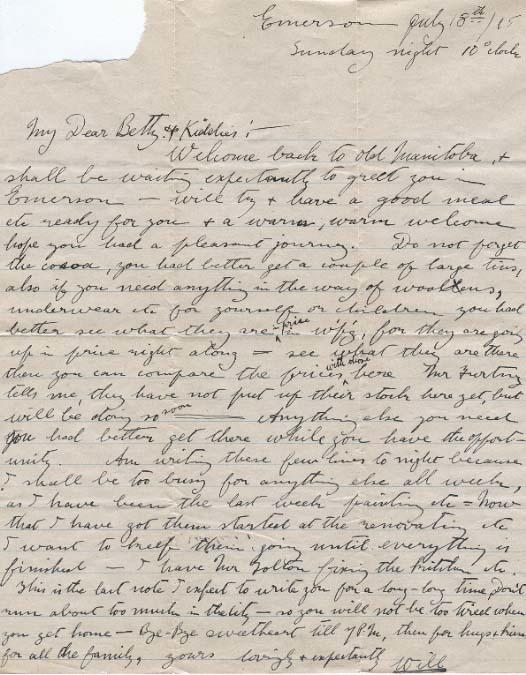 Emerson July 18th/15
Sunday night 10 o'clock
My Dear Betty & Kiddies :-
Welcome back to old Manitoba, &
shall be waiting expectantly to greet you in
Emerson — will try & have a good meal
etc ready for you & a warm, warm welcome
hope you had a pleasant journey. Do not forget
the cocoa, you had better get a couple of large tins,
also if you need anything in the way of woollens,
underwear etc for yourself or children you had
better see what they are in price in W'p'g, for they are going
up in price right along — see what they are there
then you can compare the prices with those here Mr
tells me, they have not put up their stock here yet, but
will be doing so soon — Anything else you need
you had better get there while you have the opport-
unity. Am writing these few lines to night because
I shall be too busy for anything else all week,
as I have been the last week painting etc — Now
that I have got them started at the renovating etc
I want to keep them going until everything is
finished — I have Mr fixing the kitchen etc.
This is the last note I expect to write you for a long-long time, Don't
run about too much in the city — so you will not be too tired when
you get home — Bye-Bye sweetheart till 7 P.M, then for hugs & kisses
for all the family, yours lovingly & expectantly Will